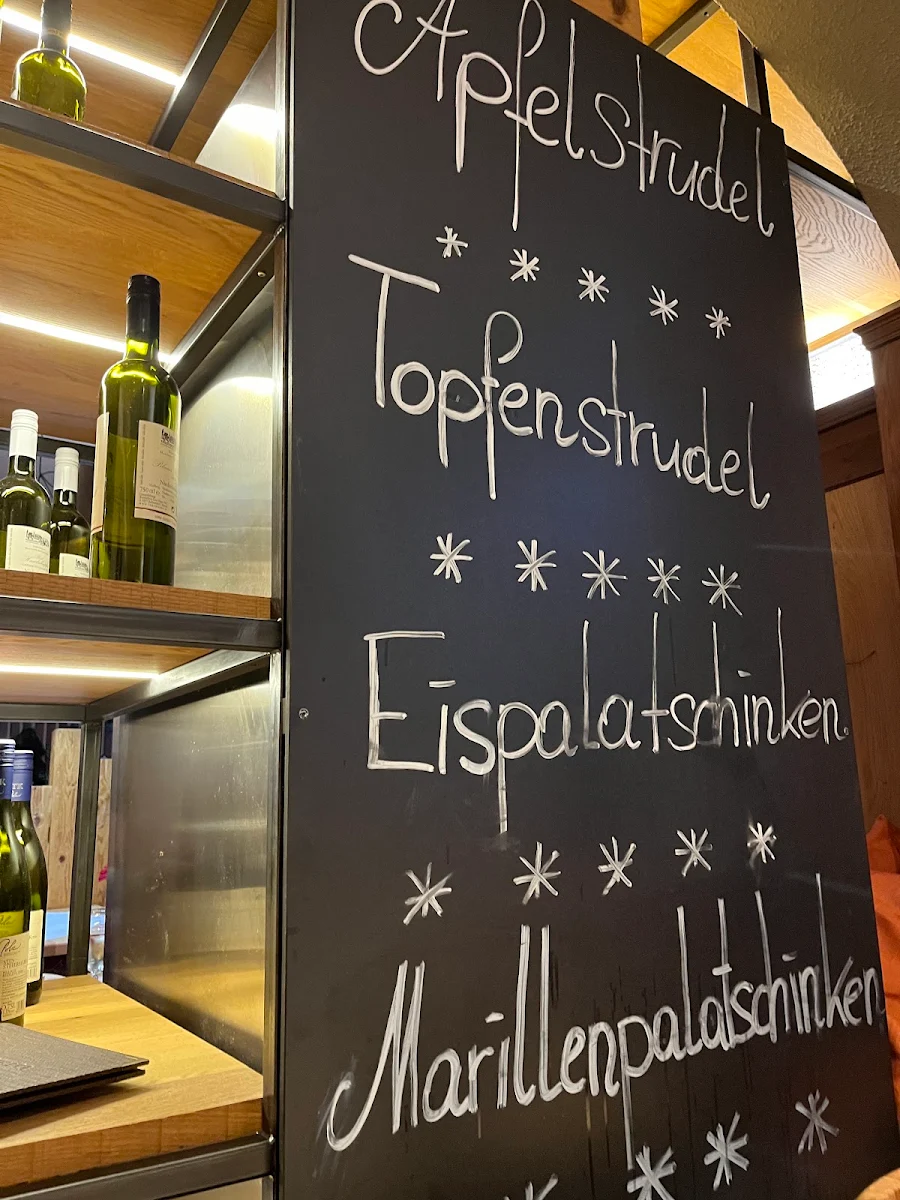 Apfelstrudel
* * * * *
Topfenstrudel
* * * * *
Eispalatschinken.
* * * * *
Marillenpalatschinken
* * * *